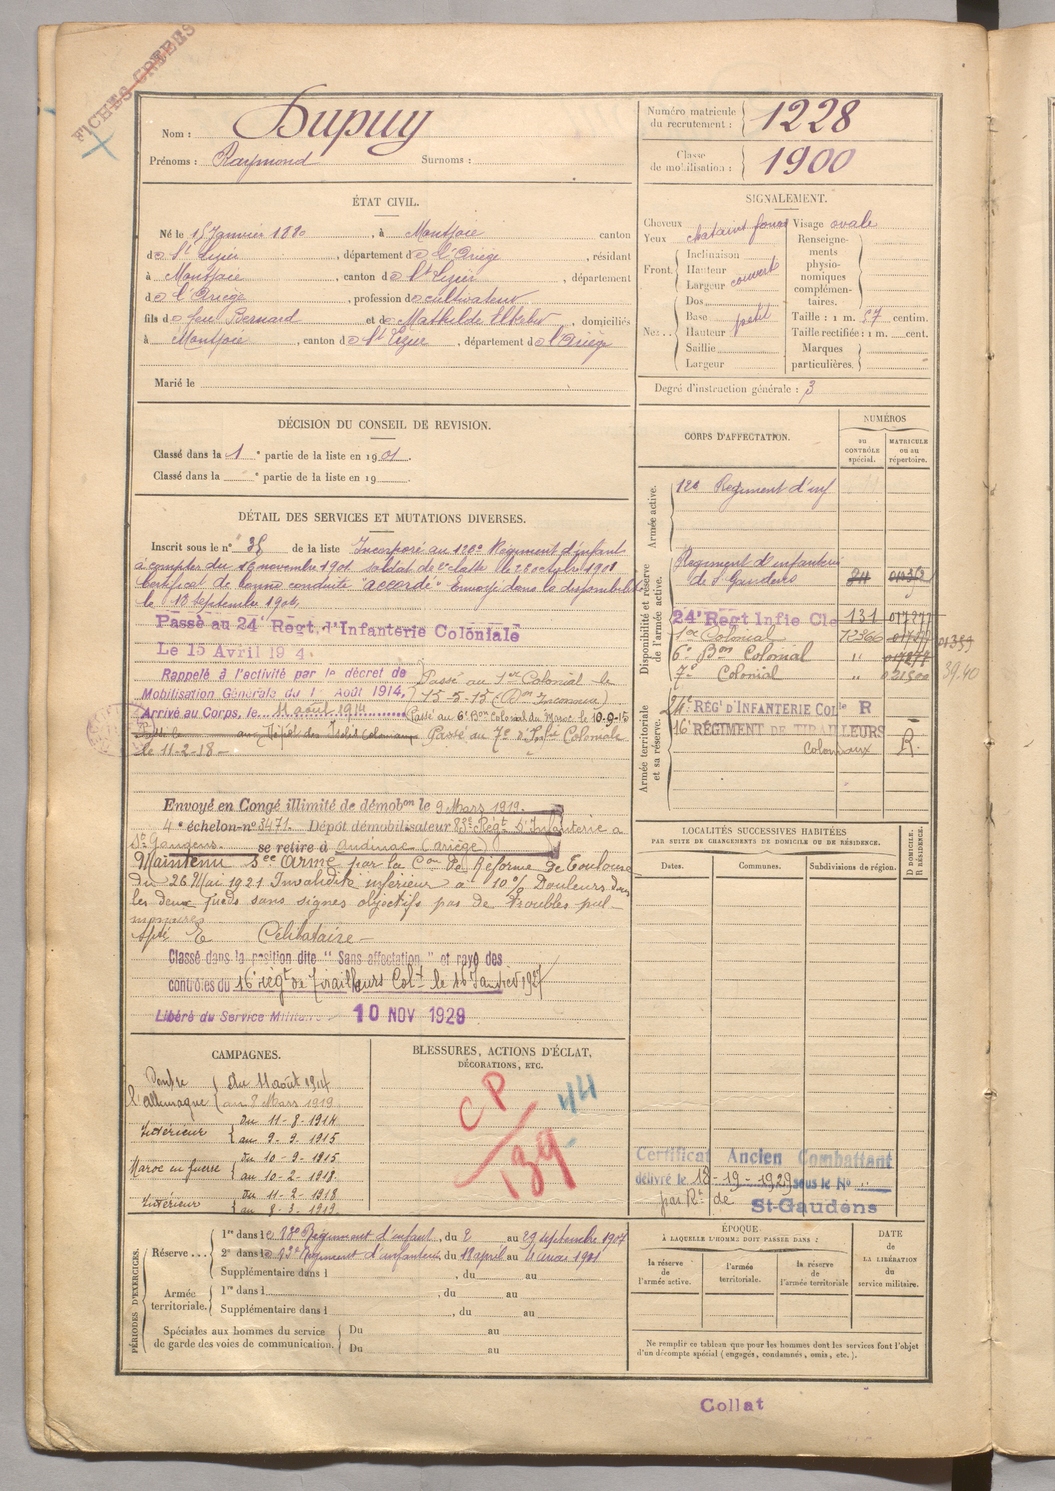 FICHES CRÉÉES
Nom : Dupuy
Prénoms : Raymond Surnoms :
Numéro matricule du recrutement : 1228
Classe de mobilisation : 1900
ÉTAT CIVIL.
Né le 15 Janvier 1880, à Montjoie canton
de St Lizier, département de l'Ariège, résidant
à Montjoie, canton de St Lizier, département
de l'Ariège, profession de cultivateur
fils de feu Bernard et de Mathilde, domiciliés
à Montjoie, canton de St Lizier, département de l'Ariège
Marié le
SIGNALEMENT.
Cheveux chatain foncé
Yeux
Front. Inclinaison
Hauteur couvert
Largeur
Nez Dos
Base
Hauteur petit
Saillie
Largeur
Visage ovale
Renseignements physionomiques complémentaires.
Taille : 1 m. 57 centim.
Taille rectifiée : 1 m. cent.
Marques particulières.
Degré d'instruction générale : 3
DÉCISION DU CONSEIL DE REVISION.
Classé dans la 1e partie de la liste en 1901.
Classé dans la e partie de la liste en 19
DÉTAIL DES SERVICES ET MUTATIONS DIVERSES.
Inscrit sous le n° 38 de la liste Incorporé au 120e Régiment d'infant
à compter du 16 novembre 1901 soldat de 2e classe le
Certificat de bonne conduite "accordé" Envoyé dans la disponibilité
le 18 Septembre 1904
Passé au 24e Régt. d'Infanterie Coloniale
Le 15 Avril 1914.
Rappelé à l'activité par le décret de
Mobilisation Générale du 1er Août 1914,
Arrivé au Corps, le 11 août 1914
Passé au 1er Colonial le
15-5-15 (Don Inconnu)
Passé au 6e Bon Colonial du Maroc le 10-9-15
Passé le au Dépôt des Isolés Coloniaux Passé au 7e d'Infie Coloniale
le 11-2-18
Envoyé en Congé illimité de démobon le 9 Mars 1919.
4e échelon-n° 3471. Dépôt démobilisateur 83e Régt d'Infanterie à
St Gaudens. se retire à Audinac (Ariège)
Maintenu See Armé par la Con de Réforme de Toulouse
du 26 Mai 1921 Invalidité inférieur à 10% Douleurs dans
les deux pieds sans signes objectifs pas de troubles pul
monaires
Célibataire
Classé dans la position dite "Sans affectation" et rayé des
contrôles du 16e régt de Tirailleurs Colx le 1er Janvier 1927
Libéré du Service Militaire 10 NOV 1929
CORPS D'AFFECTATION.
NUMÉROS
AU CONTRÔLE spécial.
MATRICULE OU AU répertoire.
Armée active.
120 Régiment d'inf
Disponibilité et réserve de l'armée active.
Régiment d'infanterie
de St Gaudens
24e Régt Infie Cle 131
1er Colonial
6e Bon Colonial "
7e Colonial "
39.40
Armée territoriale et sa réserve.
24e RÉGt D'INFANTERIE COLle R
16e RÉGIMENT DE TIRAILLEURS
Coloniaux R.
LOCALITÉS SUCCESSIVES HABITÉES
PAR SUITE DE CHANGEMENTS DE DOMICILE OU DE RÉSIDENCE.
Dates. Communes. Subdivisions de région.
D DOMICILE. R RÉSIDENCE.
CAMPAGNES.
Contre l'allemagne du 11 août 1914
au 8 Mars 1919
Intérieur du 11-8-1914
au 9-9-1915
Maroc en guerre du 10-9-1915
au 10-2-1918
Intérieur du 11-2-1918
au 8-3-1919
BLESSURES, ACTIONS D'ÉCLAT,
DÉCORATIONS, ETC.
CP
139
44
Certificat Ancien Combattant
délivré le 18-19-1929 sous le N° "
par Rt de St-Gaudens
PÉRIODES D'EXERCICES.
Réserve 1re dans le Régiment d'infant, du 2 au 29 septembre 1907
2e dans le Régiment d'infanterie, du 18 avril au
Supplémentaire dans l , du au
Armée territoriale. 1re dans l , du au
Supplémentaire dans l , du au
Spéciales aux hommes du service de garde des voies de communication. Du au
Du au
ÉPOQUE
À LAQUELLE L'HOMME DOIT PASSER DANS :
la réserve de l'armée active.
l'armée territoriale.
la réserve de l'armée territoriale
DATE DE LA LIBÉRATION du service militaire.
Ne remplir ce tableau que pour les hommes dont les services font l'objet
d'un décompte spécial (engagés, condamnés, omis, etc.).
Collat